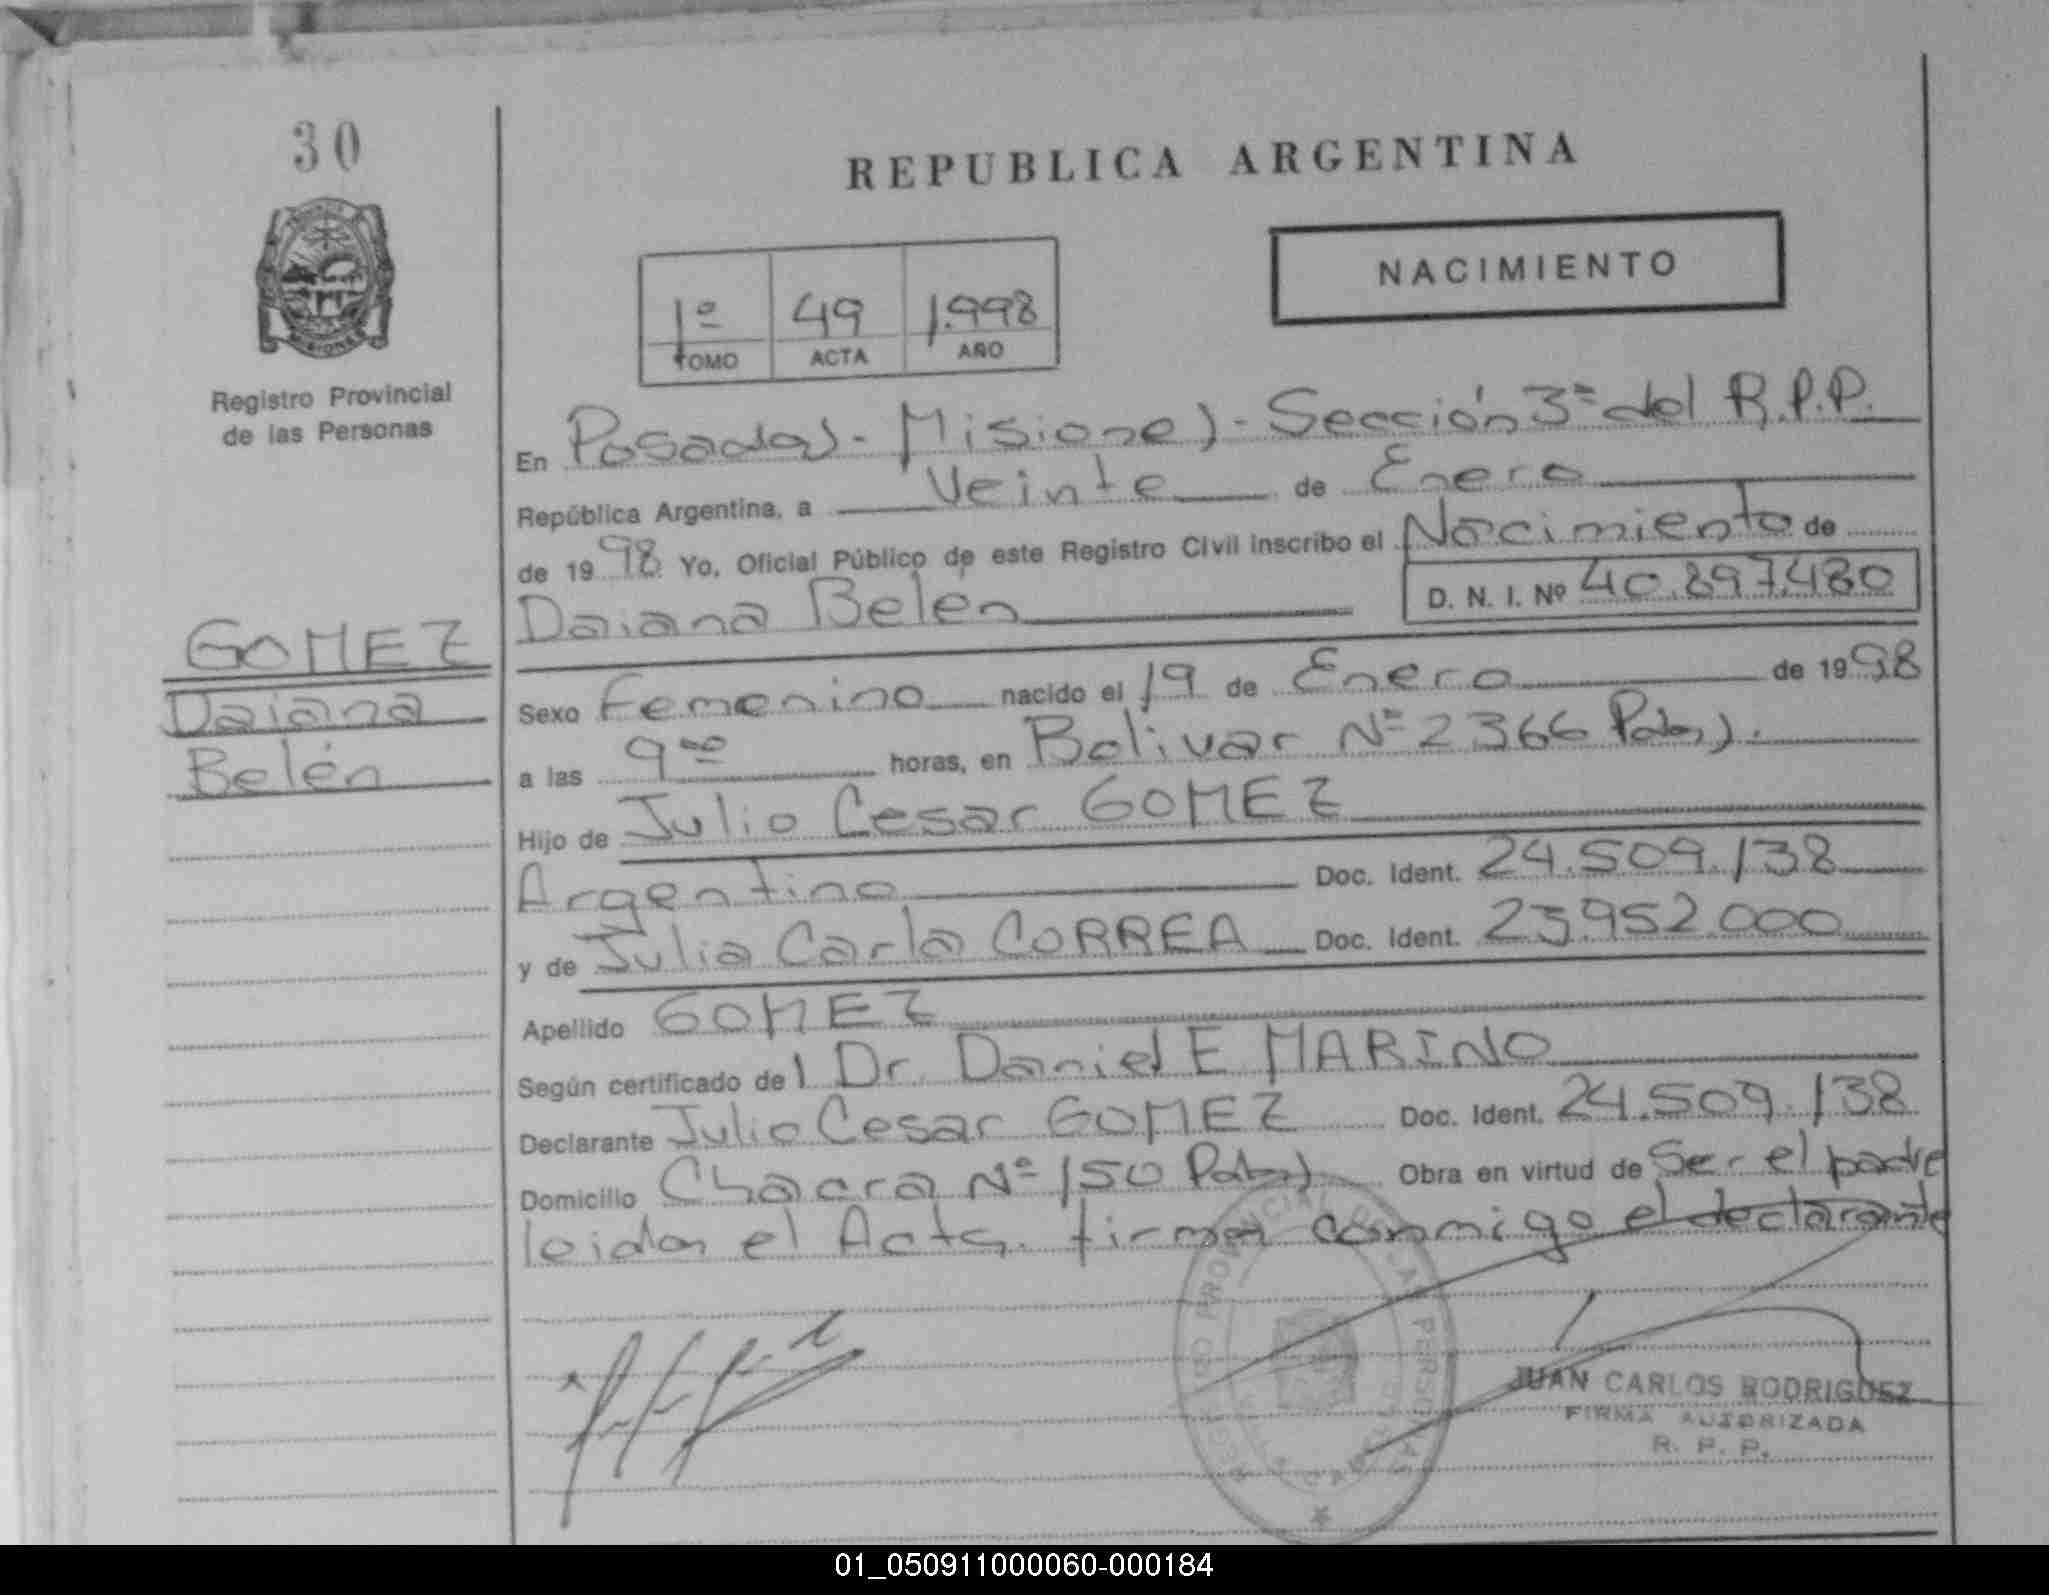 30
REPUBLICA ARGENTINA
NACIMIENTO
1º 49 1.998
TOMO ACTA AÑO
MISIONES
Registro Provincial
de las Personas
En Posadas - Misiones - Sección 3ª del R.P.P.
República Argentina, a Veinte de Enero
de 1998 Yo, Oficial Público de este Registro Civil inscribo el Nacimiento de
Daiana Belén D. N. I. Nº 40.897.480
GOMEZ
Daiana
Belén
Sexo Femenino nacido el 19 de Enero de 1998
a las 9 00 horas, en Bolivar Nº 2366 Pdas.
Hijo de Julio Cesar GOMEZ
Argentino Doc. Ident. 24.509.138
y de Julia Carla CORREA Doc. Ident. 23.952.000
Apellido GOMEZ
Según certificado del Dr. Daniel E MARINO
Declarante Julio Cesar GOMEZ Doc. Ident. 24.509.138
Domicilio Chacra Nº 150 Pdas) Obra en virtud de Ser el padre
leida el Acta. firma conmigo el declarante
JUAN CARLOS RODRIGUEZ
FIRMA AUTORIZADA
R. P. P.
01_050911000060-000184